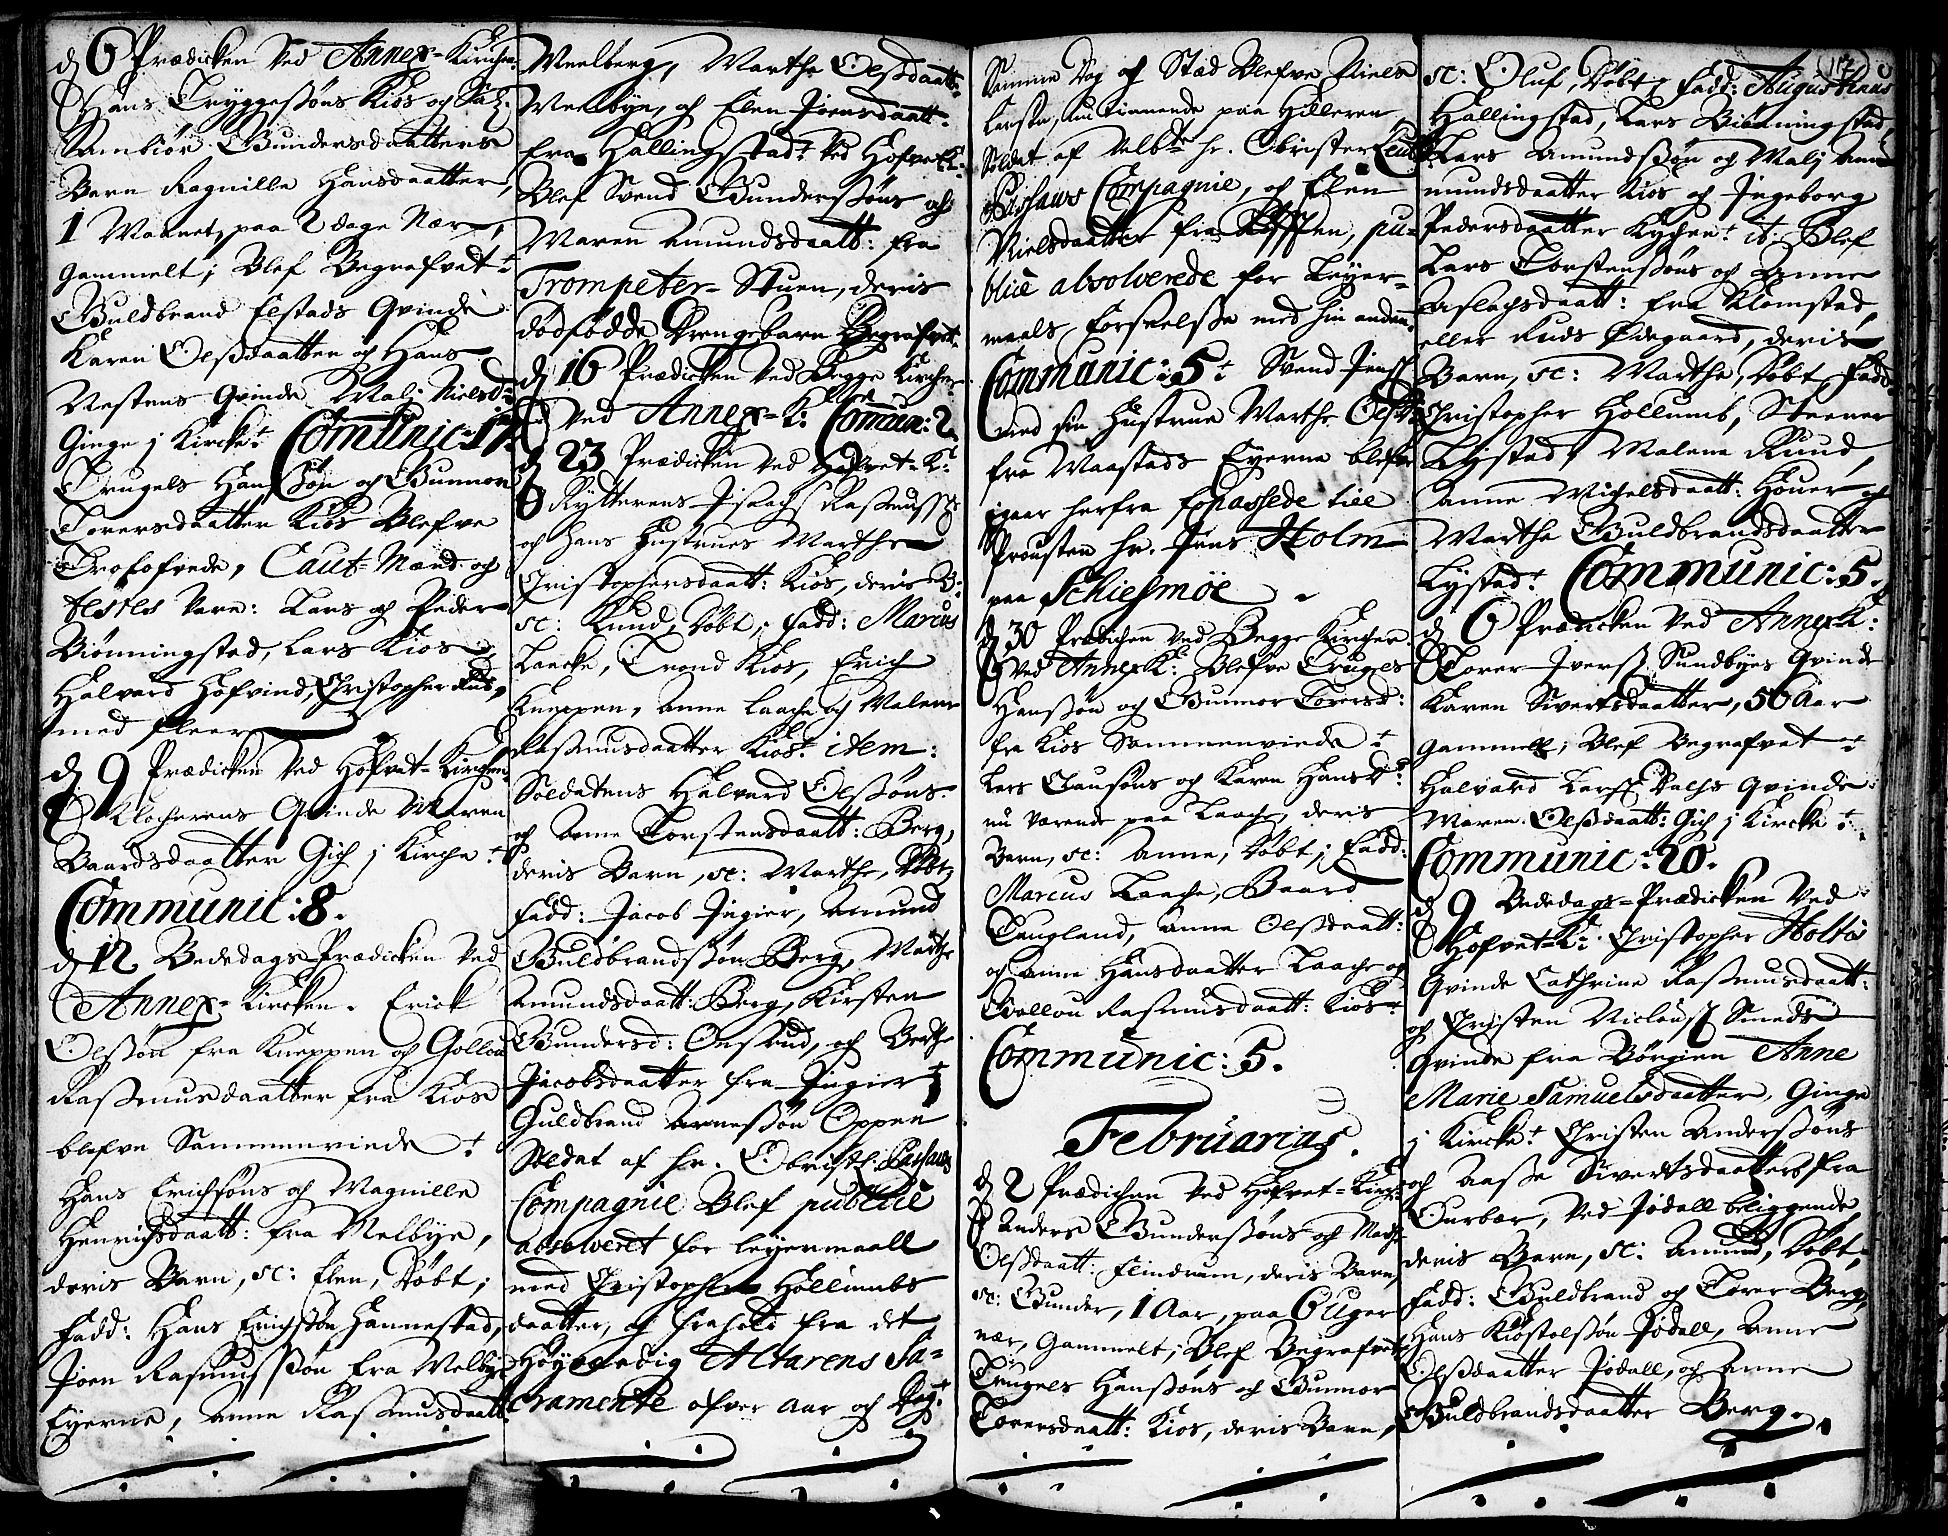 d 6 Prædicken ved Annex-Kirchen.
Hans Tryggessøns Kios og Sal:
Gundersdaatters
Barn Ragnille Hansdaatter,
1 Maanet, paa 2 dage Nær,
gammelt; Blef Begrafvet
Guldbrand Elstads Qvinde
Karen Olssdaatter og Hans
Nestens Qvinde Malj Nielsd:
Ginge j Kircke: Communic: 17.
Trugels Hanssøn og Gunnor
Torersdaatter Kios Blefve
Trolofvede, Caut-Mænd og
Vare: Lars og Peder
Biønningstad, Lars Kios
Halvard Hofvind, Christopher Rud,
med fleer
d 9 Prædicken ved Hofvet-Kirchen.
Klocherens Qvinde Maren
Baardsdaatter Gich j Kirche
Communic: 8.
d 12 Bededags-Prædicken ved
Annex-Kircken. Erick
Olssøn fra Kneppen og Gollou
Rassmusdaatter fra Kios
blefve Sammenviede
Hans Erichsøns og Magnille
Henrichsdaatt: fra Melbye,
deris Barn, sc: Elen, Døbt;
Fadd: Hans Erichssøn Hannestad,
Joen Rasmussøn fra Melbye
Eyerne, Anna Rassmusdaatt:
Meelberg, Marthe Olssdaatt:
Mellbye, og Elen Joensdaatt:
fra Hallingstad: ved Hofvet K:
Blef Svend Gunderssøns og
Maren Amundsdaatt: fra
Trompeter-Stuen, deris
dødfødde Drengebarn Begrafvet.
d 16 Prædicken ved Begge Kircher
ved Annex-K: Commun: 2
d 23 Prædicken ved Hofvet-K:
Rytterens Isachs Rassmuss:
og hans Hustrues Marthe
Christophersdaatt: Kios, deris B:
sc: Knud, Døbt; Fadd: Marcus
Laache, Trond Kios, Erich
Kneppen, Anne Laache og Malene
Rassmusdaatter Kios: item:
Soldatens Halvard Olssøns
og Anne Torstensdaatt: Berg,
deris Barn, sc: Marthe, Døbt;
Fadd: Jacob Jngier, Amund
Guldbrandssøn Berg, Marthe
Amundsdaatt: Berg, Kirsten
Gundersd: Onsrud, og Berthe
Jacobsdaatter fra Jngier
Guldbrand Arnessøn Oppen
Soldat af hr. Obristl:
Compagnie Blef publicè
absolveret for leyermaall
med Christopher Hollumbs
daatter, og fra det
Høyværdig Altarens Sa-
cramente ofver Aar og Dag.
Samme Dag og Stæd Blefve Niels
tienende paa Hilleren
Soldat af Velb: hr. Obrister
Compagnie, og Elen
Nielsdaatter fra pu-
blicè absolverede for Leyer-
maals Forseelsse med hin anden,
Communic: 5. Svend Jenss:
med sin Hustrue Marthe Olssd:
fra Maastads Eyerne blefve
igaar herfra passede till
Prousten hr. Jens Holm
paa Schiesmøe
d 30 Prædichen ved Begge Kircher
Ved Annex K: Blefve Truges
Hanssøn og Gunnor Torersd:
fra Kios Sammenviede
Lars Clausøns og Karen Hansd:
nu værende paa Laache, deris
Barn, sc: Anne, Døbt; Fadd:
Marcus Laache, Baard
Taugland, Anna Olssdaatt:
og Anne Hansdaatter Laache og
Gollou Rasmusdaatt: Kios
Communic: 5.
Februarius.
d 2 Prædichen ved Hofvet-Kirch:
Anders Gunderssøns og Marthe
Olssdaatt: Flindrum, deris Barn,
sc: Gunder, 1 Aar, paa 6 uger
nær, Gammelt; Blef Begrafvet
Trugels Hanssøns og Gunnor
Torersdaatt: Kios, deris Barn,
sc: Oluf, Døbt; Fadd: Augustinus
Hallingstad, Lars Biønningstad,
Lars Amundssøn og Malj Am-
mundsdaatter Kios og Jngeborg
Pedersdaatter Kychen: it: Blef
Lars Torstenssøns og Anne
Aslachsdaatt: fra Klomstad,
eller Ruds Ødegaard, deris
Barn, sc: Marthe, Døbt, Fadd:
Christopher Hollumb, Steener
Lystad, Malene Ruud,
Anne Michelsdaatt: Houer og
Marthe Guldbrandsdaatter
Lystad: Communic: 5.
d 6 Prædicken ved Annex K:
Torer Iverss: Sundbyes Qvinde
Karen Sivertsdaatter, 50 Aar
gammell; Blef Begrafvet
Halvard Larss: Dalhs Qvinde
Maren Olssdaatt: Gich j Kircke
Communic: 20.
d 9 Bededags-Prædicken ved
Hofvet-K: Christopher Holtes
Qvinde Cathrine Rassmusdaatt:
og Christen Niclauss: Smeds
Qvinde fra Børgien Anne
Marie Samuelsdaatter, Ginge
j Kircke: Christen Anderssøns
og Aasse Sivertsdaatters fra
Ourbær, ved Jødall beliggende,
deris Barn, sc: Amund, Døbt,
Fadd: Guldbrand og Torer Berg,
Hans Kiøstolssøn Jødall, Anne
Olssdaatter Jødall, og Anne
Guldbrandsdaatter Berg.